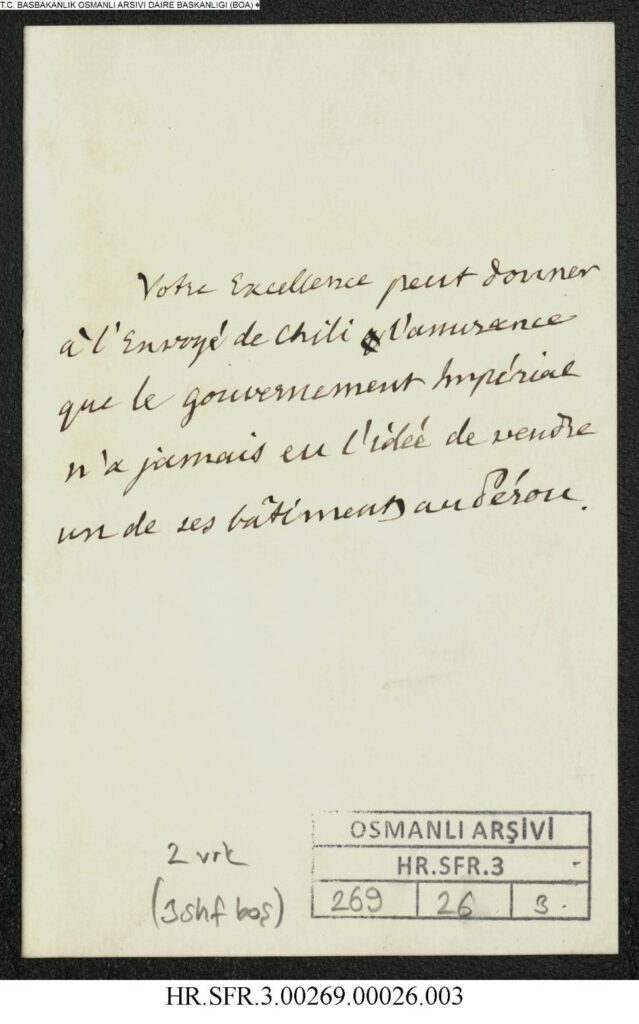 T.C. BASBAKANLIK OSMANLI ARSIVI DAIRE BASKANLIGI (BOA)
Votre Excellence peut donner
à l'Envoyé de Chili l'assurance
que le gouvernement Impérial
n'a jamais eu l'idée de vendre
un de ses bâtiments au Pérou.
2 vrk
(3 shf boş)
OSMANLI ARŞİVİ
HR.SFR.3
269 26 3.
HR.SFR.3.00269.00026.003